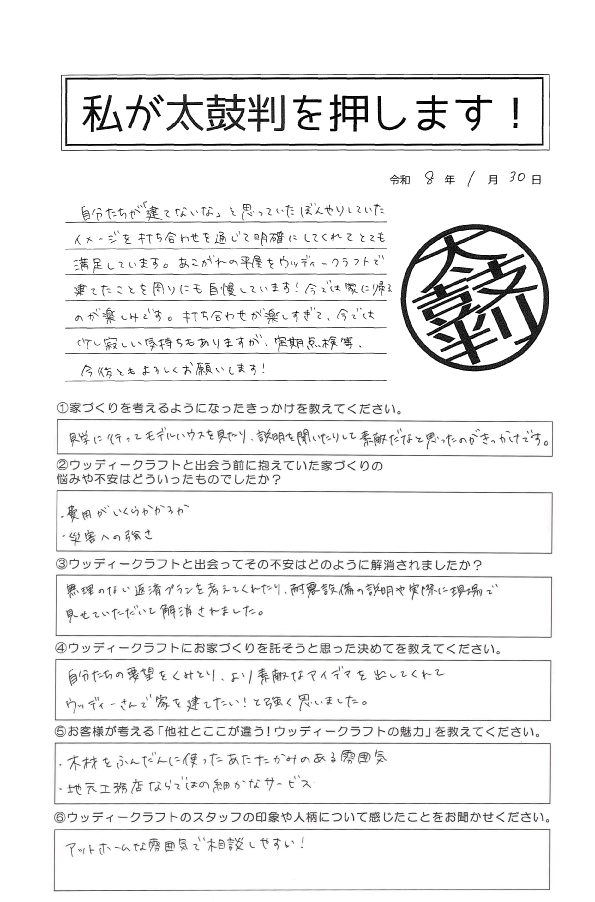 私が太鼓判を押します！
令和 8 年 1 月 30 日
自分たちが「建てないな」と思っていたぼんやりしていた
イメージを打ち合わせを通じて明確にしてくれてとても
満足しています。あこがれの平屋をウッディークラフトで
建てたことを周りにも自慢しています！今では家に帰る
のが楽しみです。打ち合わせが楽しすぎて、今では
少し寂しい気持ちもありますが、定期点検等、
今後ともよろしくお願いします！
太鼓判
①家づくりを考えるようになったきっかけを教えてください。
見学に行ってモデルハウスを見たり、説明を聞いたりして素敵だなと思ったのがきっかけです。
②ウッディークラフトと出会う前に抱えていた家づくりの
悩みや不安はどういったものでしたか？
・費用がいくらかかるか
・災害への強さ
③ウッディークラフトと出会ってその不安はどのように解消されましたか？
無理のない返済プランを考えてくれたり、耐震設備の説明や実際に現場で
見せていただいて解消されました。
④ウッディークラフトにお家づくりを託そうと思った決めてを教えてください。
自分たちの要望をくみとり、より素敵なアイデアを出してくれて
ウッディーさんで家を建てたい！と強く思いました。
⑤お客様が考える「他社とここが違う！ウッディークラフトの魅力」を教えてください。
・木材をふんだんに使ったあたたかみのある雰囲気
・地元工務店ならではの細かなサービス
⑥ウッディークラフトのスタッフの印象や人柄について感じたことをお聞かせください。
アットホームな雰囲気で相談しやすい！